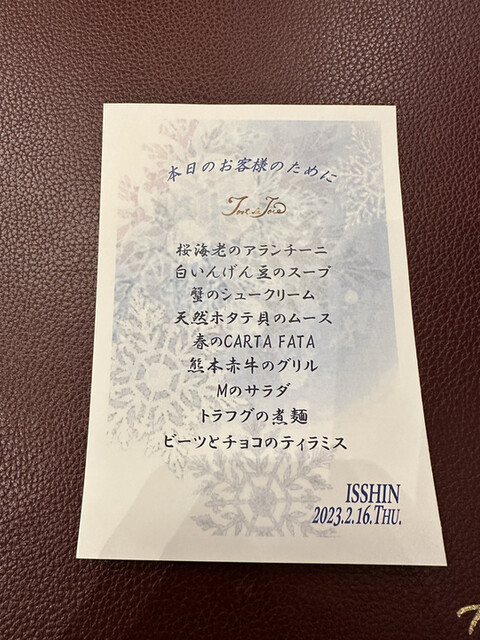 本日のお客様のために
桜海老のアランチーニ
白いんげん豆のスープ
蟹のシュークリーム
天然ホタテ貝のムース
春のCARTA FATA
熊本赤牛のグリル
Mのサラダ
トラフグの煮麺
ビーツとチョコのティラミス
ISSHIN
2023.2.16.THU.